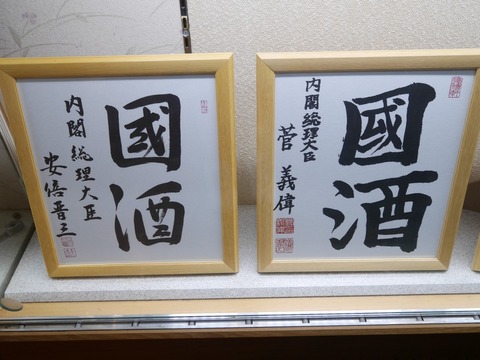 國酒
内閣総理大臣
安倍晋三
國酒
内閣総理大臣
菅義偉